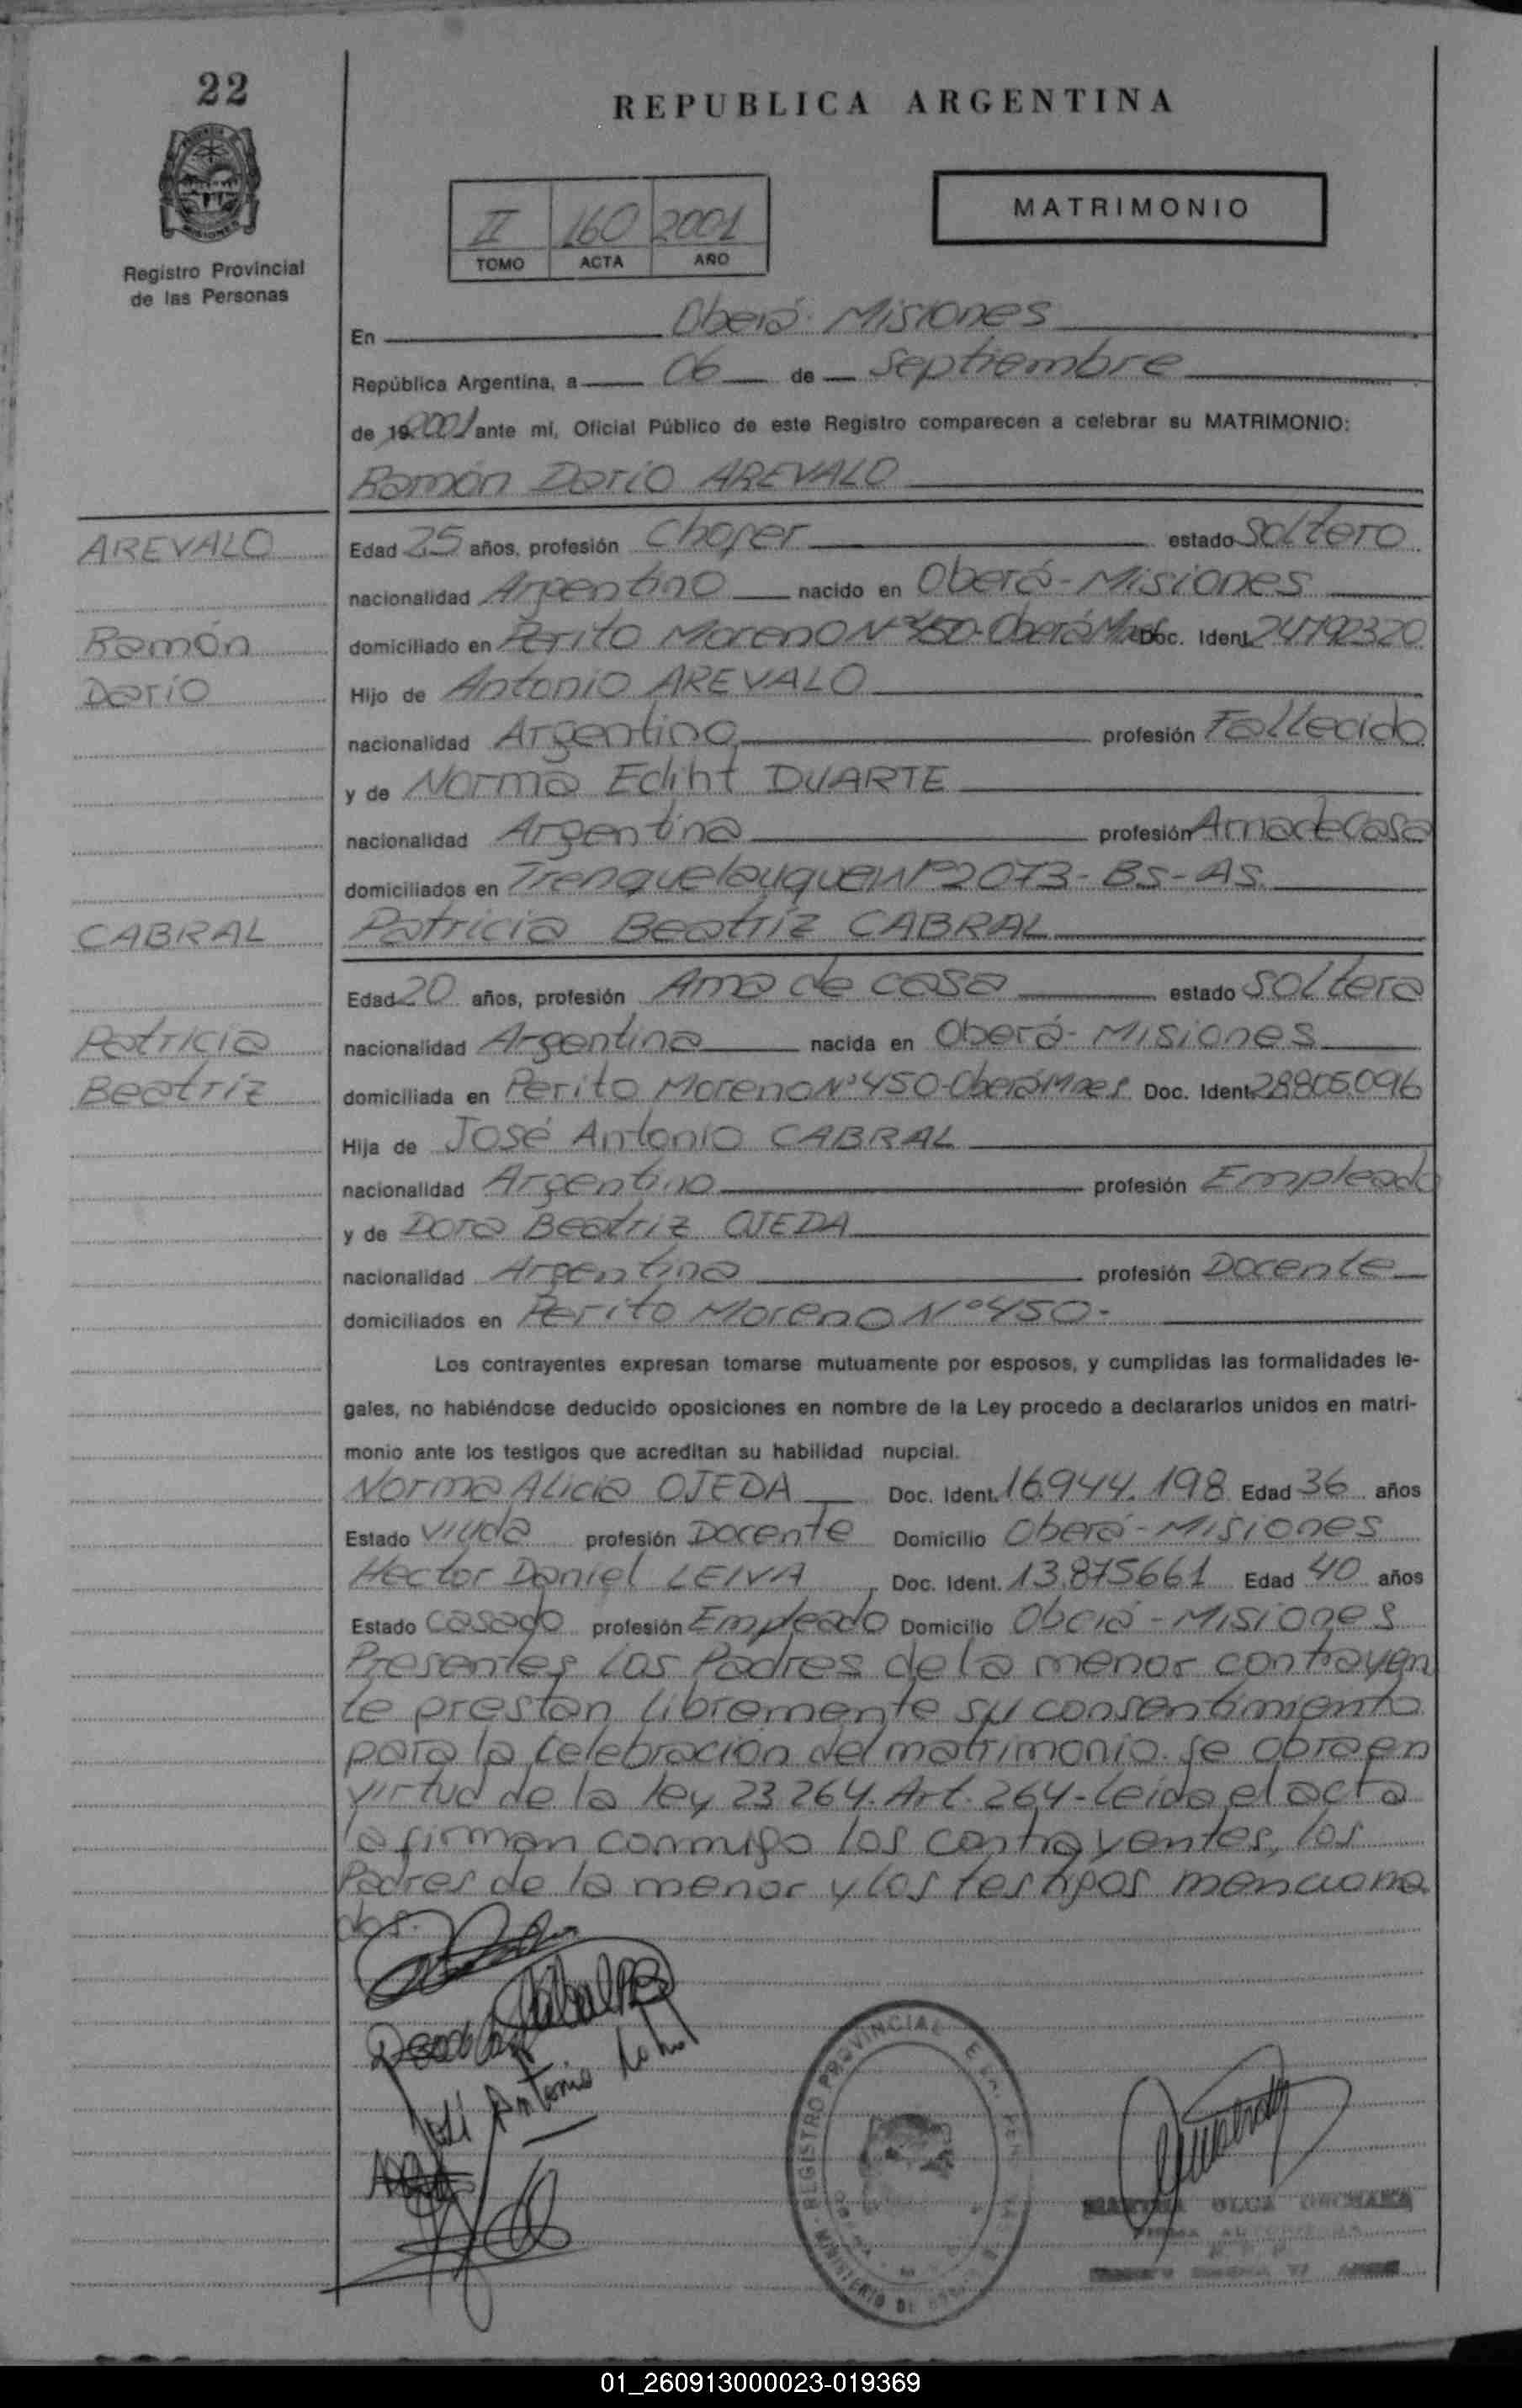 22
REPUBLICA ARGENTINA
MISIONES
Registro Provincial
de las Personas
II 160 2001
TOMO ACTA AÑO
MATRIMONIO
En Oberá - Misiones
República Argentina, a 06 de Septiembre
de 19 2001 ante mí, Oficial Público de este Registro comparecen a celebrar su MATRIMONIO:
Ramón Dario AREVALO
AREVALO
Ramón
Dario
Edad 25 años, profesión Chofer estado Soltero
nacionalidad Argentino nacido en Oberá - Misiones
domiciliado en Perito Moreno Nº 450 - Oberá Mnes Doc. Ident. 24792320
Hijo de Antonio AREVALO
nacionalidad Argentino profesión Fallecido
y de Norma Ediht DUARTE
nacionalidad Argentina profesión Ama de Casa
domiciliados en Trenquelauquen Nº 2073 - Bs - As.
CABRAL
Patricia
Beatriz
Patricia Beatriz CABRAL
Edad 20 años, profesión Ama de casa estado Soltera
nacionalidad Argentina nacida en Oberá - Misiones
domiciliada en Perito Moreno Nº 450 - Oberá Mnes Doc. Ident. 28805096
Hija de José Antonio CABRAL
nacionalidad Argentino profesión Empleado
y de Dora Beatriz OJEDA
nacionalidad Argentina profesión Docente
domiciliados en Perito Moreno Nº 450 -
Los contrayentes expresan tomarse mutuamente por esposos, y cumplidas las formalidades le-
gales, no habiéndose deducido oposiciones en nombre de la Ley procedo a declararlos unidos en matri-
monio ante los testigos que acreditan su habilidad nupcial.
Norma Alicia OJEDA Doc. Ident. 16.944.198 Edad 36 años
Estado Viuda profesión Docente Domicilio Oberá - Misiones
Hector Daniel LEIVA, Doc. Ident. 13.875661 Edad 40 años
Estado Casado profesión Empleado Domicilio Oberá - Misiones
Presentes los Padres de la menor contrayen
te prestan libremente su consentimiento
para la celebración del matrimonio. Se obra en
virtud de la ley 23 264. Art. 264 - Leida el acta
la firman conmigo los contrayentes, los
Padres de la menor y los testigos menciona
dos.
José Antonio
REGISTRO PROVINCIAL
MINISTERIO DE
OLGA
01_260913000023-019369